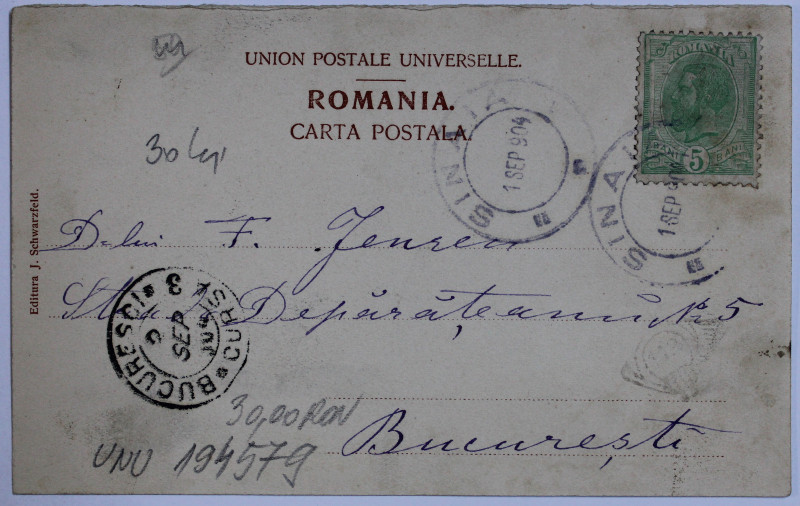 UNION POSTALE UNIVERSELLE.
ROMANIA.
CARTA POSTALA.
ROMANIA
BANI 5 BANI
SINAIA
1 SEP 904
SINAIA
1 SEP 90
30 lei
Editura J. Schwarzfeld.
D-lui F. Jensen
Strada Depărățeanu Nr 5
București
BUCURESCI
CURSA 3
SEP
30,00 RON
UNU 194579